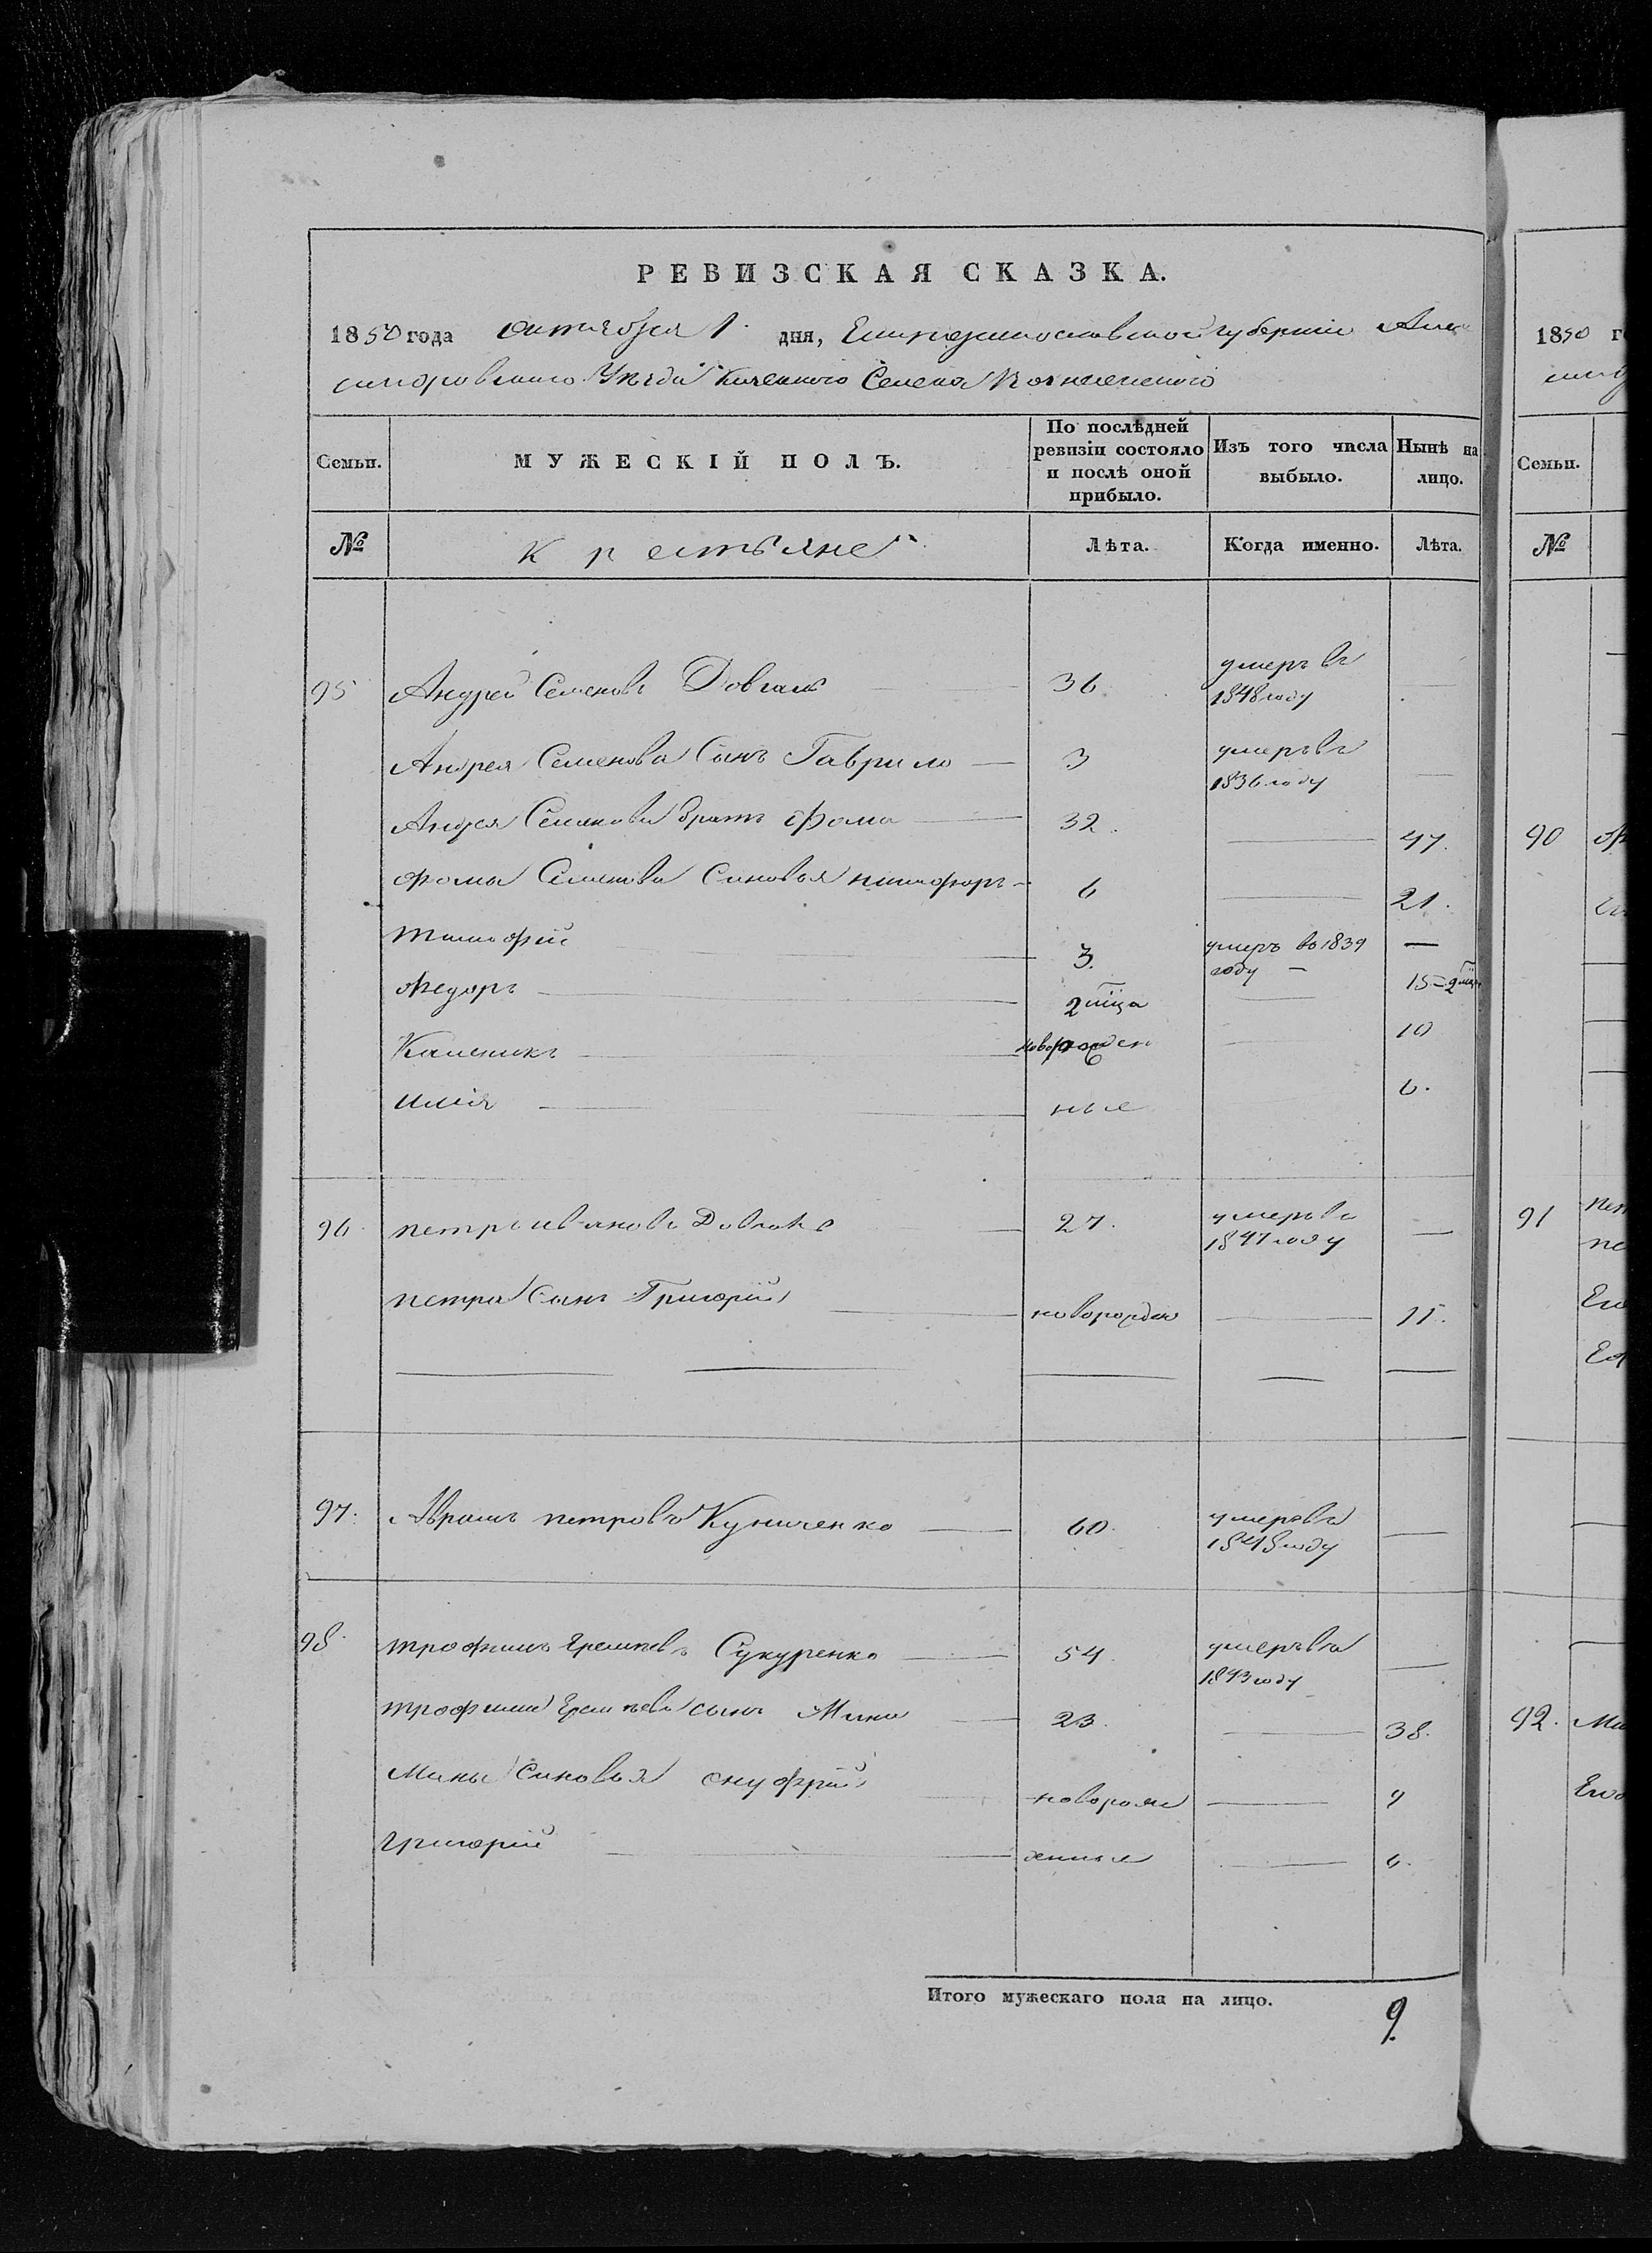 РЕВИЗСКАЯ СКАЗКА.
1850 года октября 1. дня, Екатеринославской губерніи Але
ксандровского Уѣзда Казенного Селена Вознесенского
Семьи.
МУЖЕСКІЙ ПОЛЪ.
По послѣдней ревизіи состояло и послѣ оной прибыло.
Изъ того числа выбыло.
Нынѣ на лицо.
№
Крестьяне
Лѣта.
Когда именно.
Лѣта.
95 Андрей Семеновъ 36 умеръ въ 1848 году —
Андрея Семенова Сынъ Гаврило — 3 умеръ въ 1836 году —
Андрея Семенова братъ Фома 32. — 47.
Фомы Семенова Синовья Никифоръ — 6 — 21.
Тимофей 3. умеръ во 1839 году — —
Федоръ — 2 мца — 15 = 2 мца
— новорожден — 10
Илія — ные 6.
96 Петръ Ивановъ 27. умеръ въ 1847 году —
Петра Сынъ Григорій — новорожден — 11.
97. Аврамъ Петровъ Куниченко — 60. умеръ въ 1848 году —
98 Трофимъ Сукуренко — 54. умеръ въ 1843 году —
Трофима сынъ Мина — 23. — 38.
Мины Синовья Онуфрій новорож — 9
Григорій — денные — 6.
Итого мужескаго пола на лицо. 9.
1850 г
Семьи.
№
90
91
92. Ми